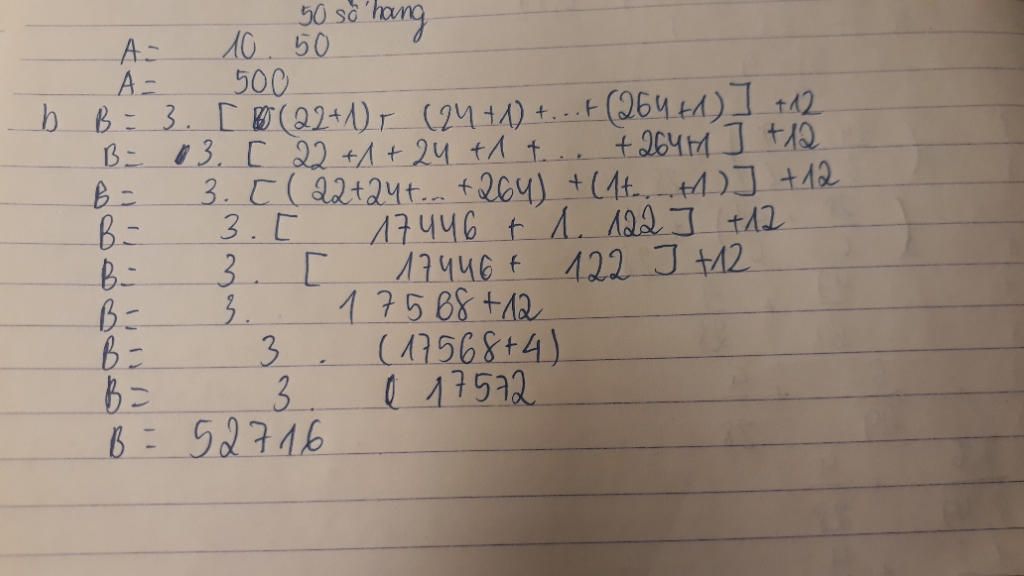 50 số hạng
A = 10 . 50
A = 500
b B = 3 . [ (22+1) + (24+1) +...+ (264+1) ] +12
B = 3. [ 22 +1 + 24 +1 + ... + 264+1 ] +12
B = 3. [ ( 22+24+... +264) + (1+... +1) ] +12
B = 3. [ 17446 + 1. 122 ] +12
B = 3. [ 17446 + 122 ] +12
B = 3. 17568 +12
B = 3 . (17568+4)
B = 3. ( 17572
B = 52716